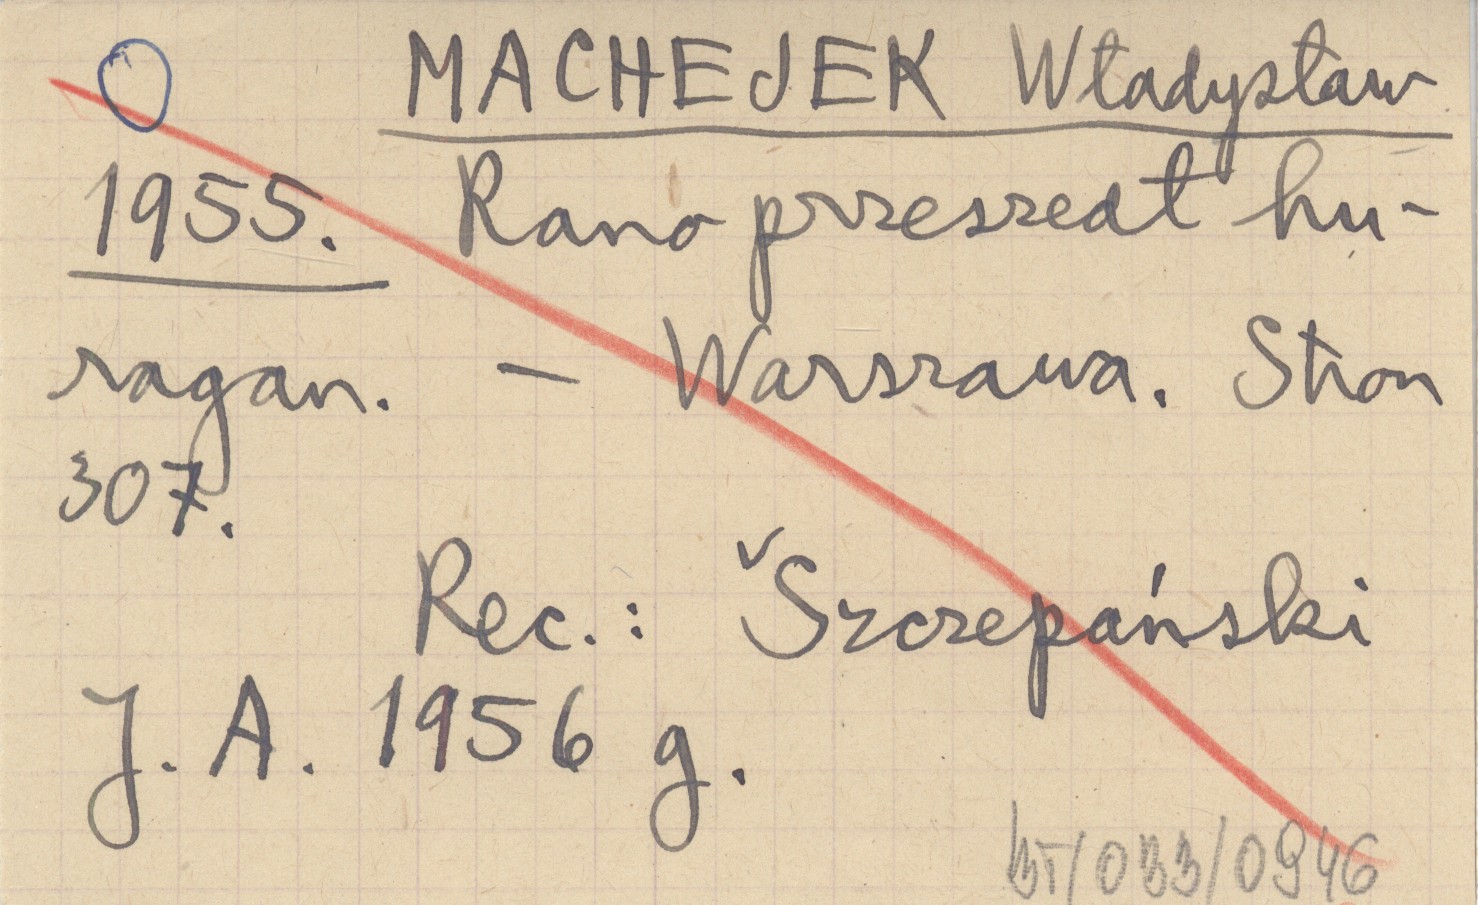 MACHEJEK Władysław
1955. Rano przeszedł hu-
ragan. – Warszawa. Stron
307.
Rec.: Szczepański
J. A. 1956 g.
/033/0946